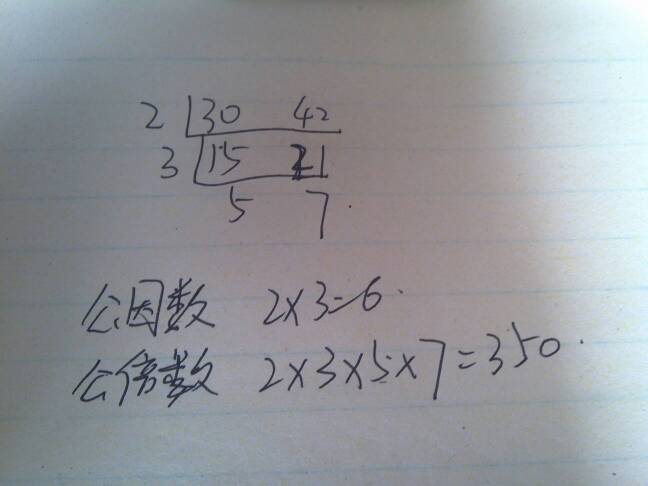 2 30 42
3 15 21
5 7.
公因数 2×3=6.
公倍数 2×3×5×7=350.